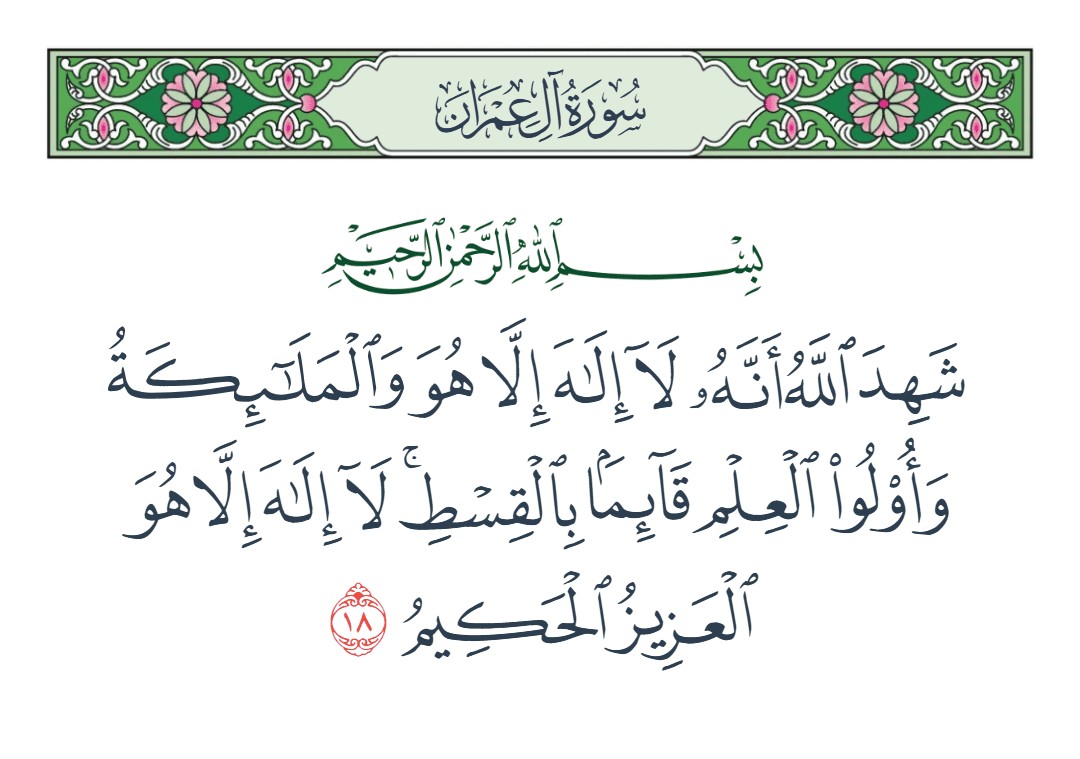 سُورَةُ آلِ عِمۡرَانَ
بِسۡمِ ٱللَّهِ ٱلرَّحۡمَٰنِ ٱلرَّحِيمِ
شَهِدَ ٱللَّهُ أَنَّهُۥ لَآ إِلَٰهَ إِلَّا هُوَ وَٱلۡمَلَٰٓئِكَةُ
وَأُوْلُواْ ٱلۡعِلۡمِ قَآئِمَۢا بِٱلۡقِسۡطِۚ لَآ إِلَٰهَ إِلَّا هُوَ
ٱلۡعَزِيزُ ٱلۡحَكِيمُ ١٨